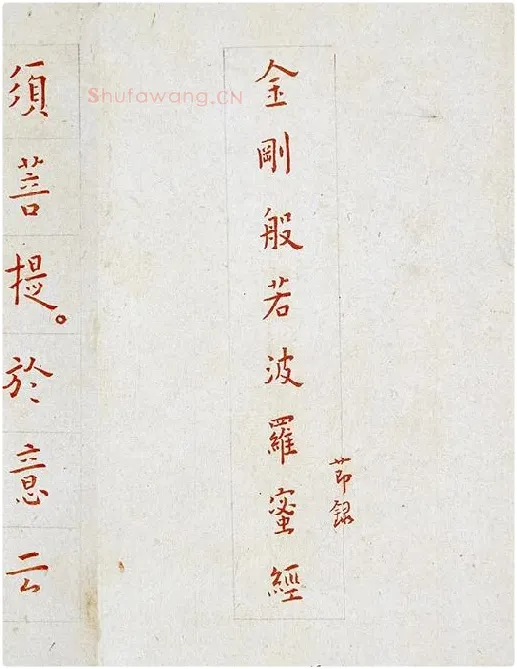 金剛般若波羅蜜經
節録
須菩提。於意云
Shufawang.CN